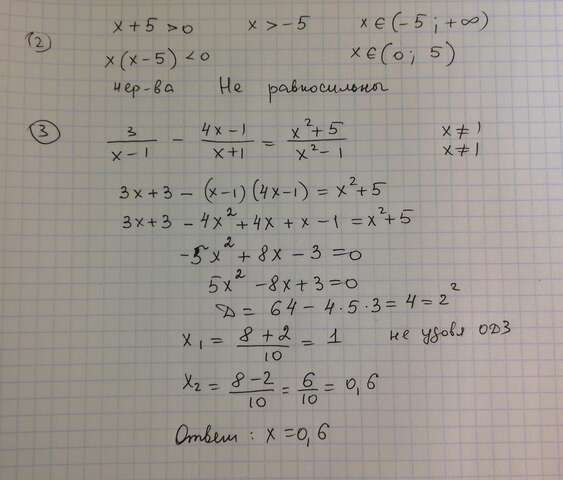 2) x + 5 > 0 x > -5 x ∈ (-5 ; +∞)
x(x-5) < 0 x ∈ (0; 5)
нер-ва Не равносильны
3) 3/(x-1) - (4x-1)/(x+1) = (x²+5)/(x²-1) x ≠ 1
x ≠ 1
3x+3 - (x-1)(4x-1) = x²+5
3x+3 - 4x² + 4x + x - 1 = x²+5
-5x² + 8x - 3 = 0
5x² - 8x + 3 = 0
D = 64 - 4·5·3 = 4 = 2²
x₁ = (8+2)/10 = 1 не удовл ОДЗ
x₂ = (8-2)/10 = 6/10 = 0,6
Ответ: x = 0,6